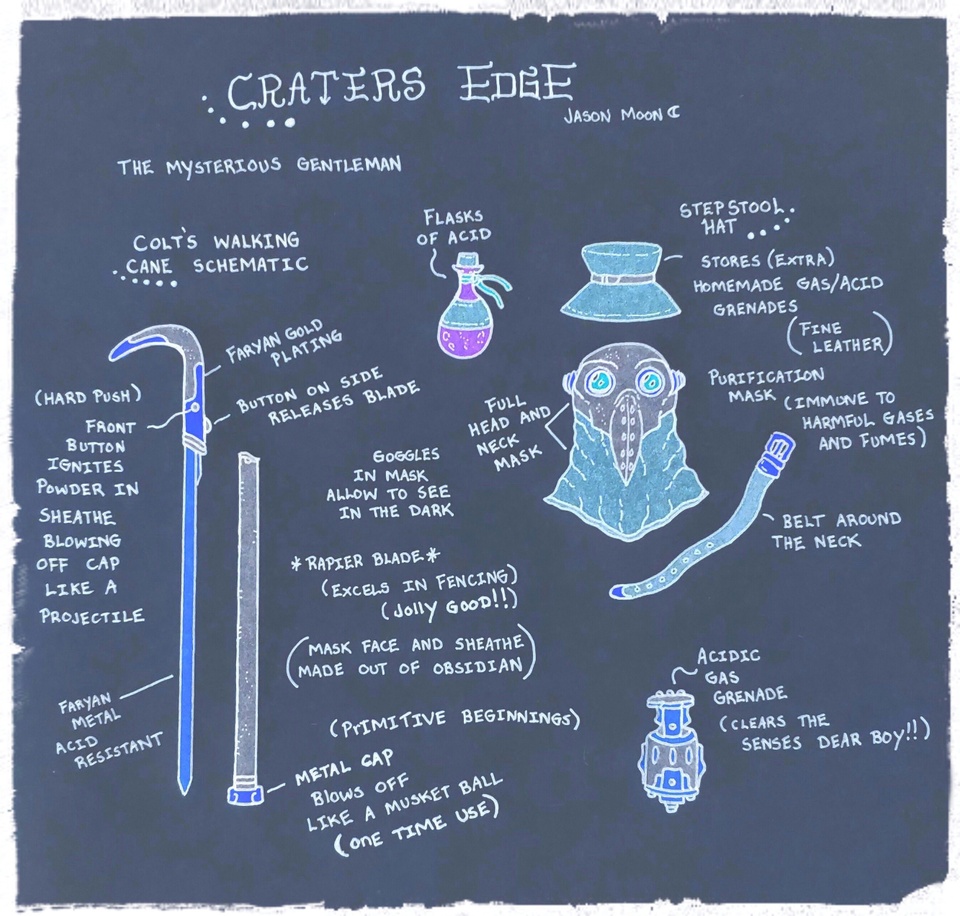 CRATERS EDGE
JASON MOON
THE MYSTERIOUS GENTLEMAN
COLT'S WALKING
CANE SCHEMATIC
FLASKS
OF ACID
STEPSTOOL
HAT
STORES (EXTRA)
HOMEMADE GAS/ACID
GRENADES
(FINE
LEATHER)
FARYAN GOLD
PLATING
BUTTON ON SIDE
RELEASES BLADE
(HARD PUSH)
FRONT
BUTTON
IGNITES
POWDER IN
SHEATHE
BLOWING
OFF CAP
LIKE A
PROJECTILE
FULL
HEAD AND
NECK
MASK
PURIFICATION
MASK
(IMMUNE TO
HARMFUL GASES
AND FUMES)
GOGGLES
IN MASK
ALLOW TO SEE
IN THE DARK
BELT AROUND
THE NECK
*RAPIER BLADE*
(EXCELS IN FENCING)
(JOLLY GOOD!!)
(MASK FACE AND SHEATHE
MADE OUT OF OBSIDIAN)
(PRIMITIVE BEGINNINGS)
FARYAN
METAL
ACID
RESISTANT
METAL CAP
BLOWS OFF
LIKE A MUSKET BALL
(ONE TIME USE)
ACIDIC
GAS
GRENADE
(CLEARS THE
SENSES DEAR BOY!!)